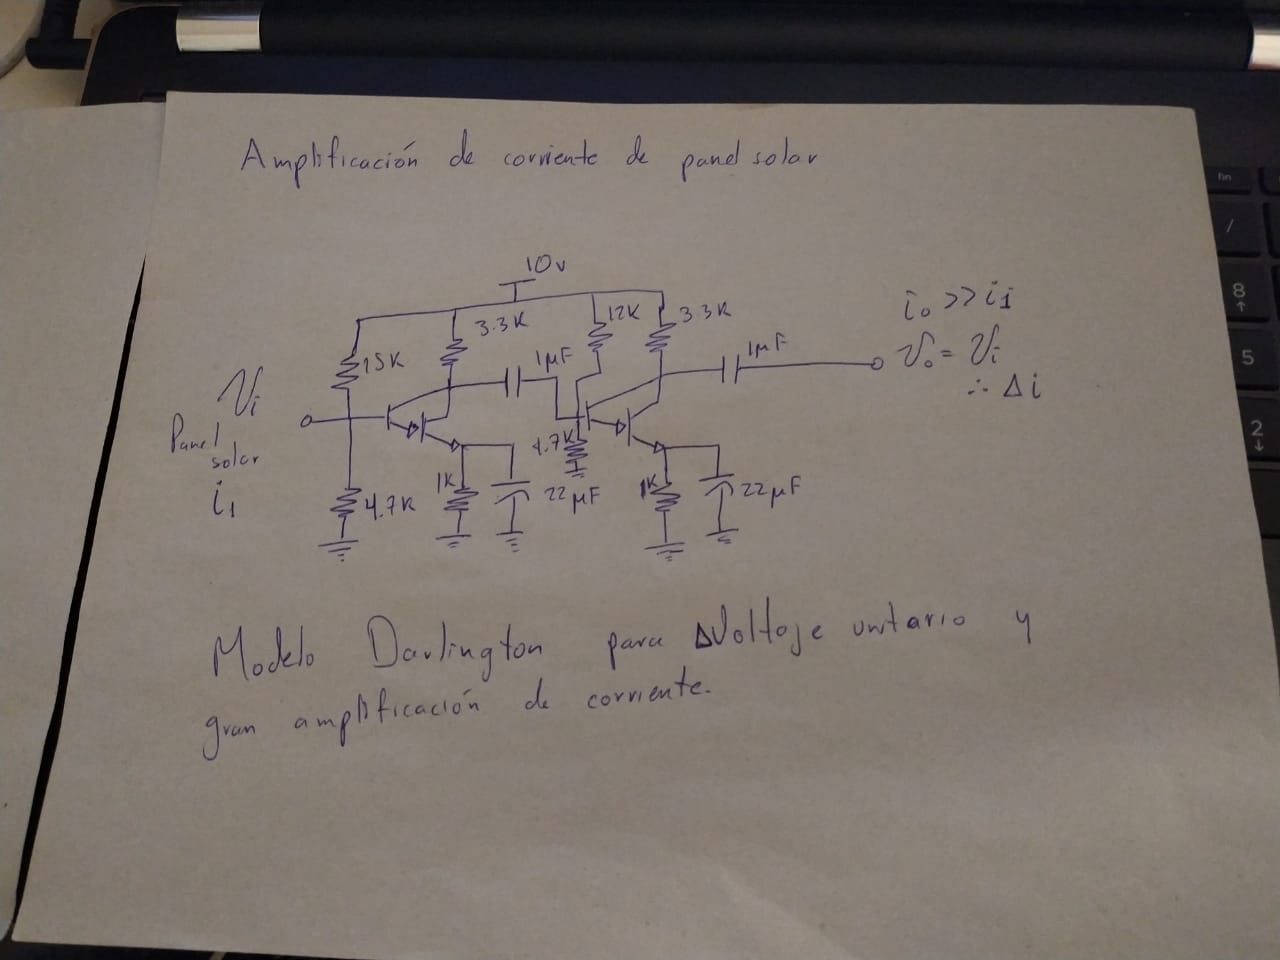 Amplificación de corriente de panel solar
10v
15K
3.3K
1µF
12K
3.3K
1µF
Vi
Panel
solar
i1
4.7K
1K
22µF
4.7K
1K
22µF
io >> i1
Vo = Vi
∴ Δi
Modelo Darlington para ΔVoltaje unitario y
gran amplificación de corriente.
fin
/
8
5
2